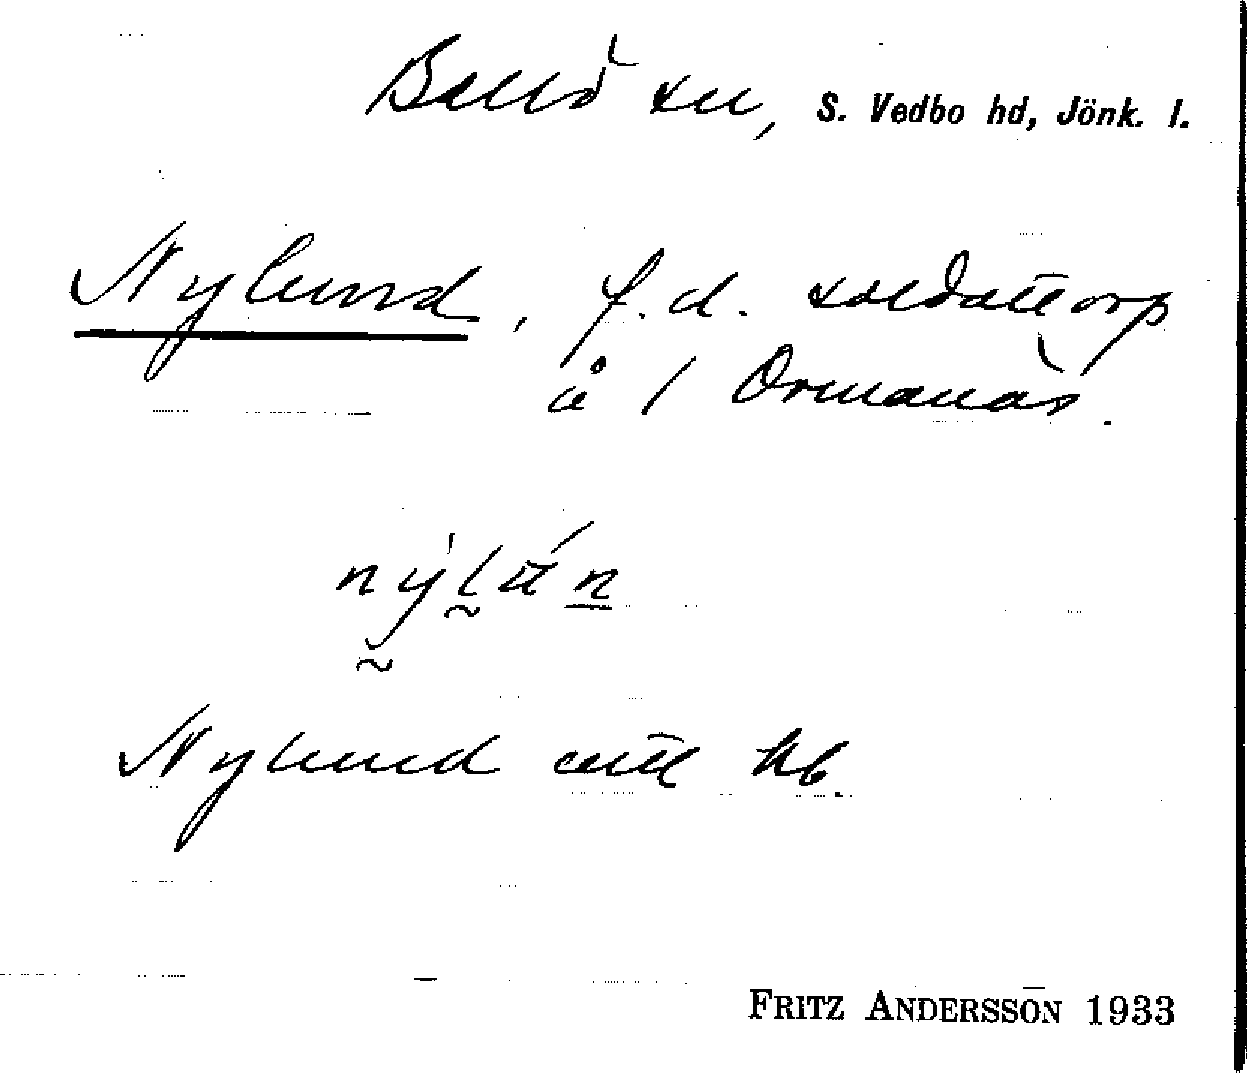 Bellö sn, S. Vedbo hd, Jönk. l.
Nylund, f.d. soldattorp
å / Ormanäs.
nẏlún
Nylund enl hb.
FRITZ ANDERSSON 1933